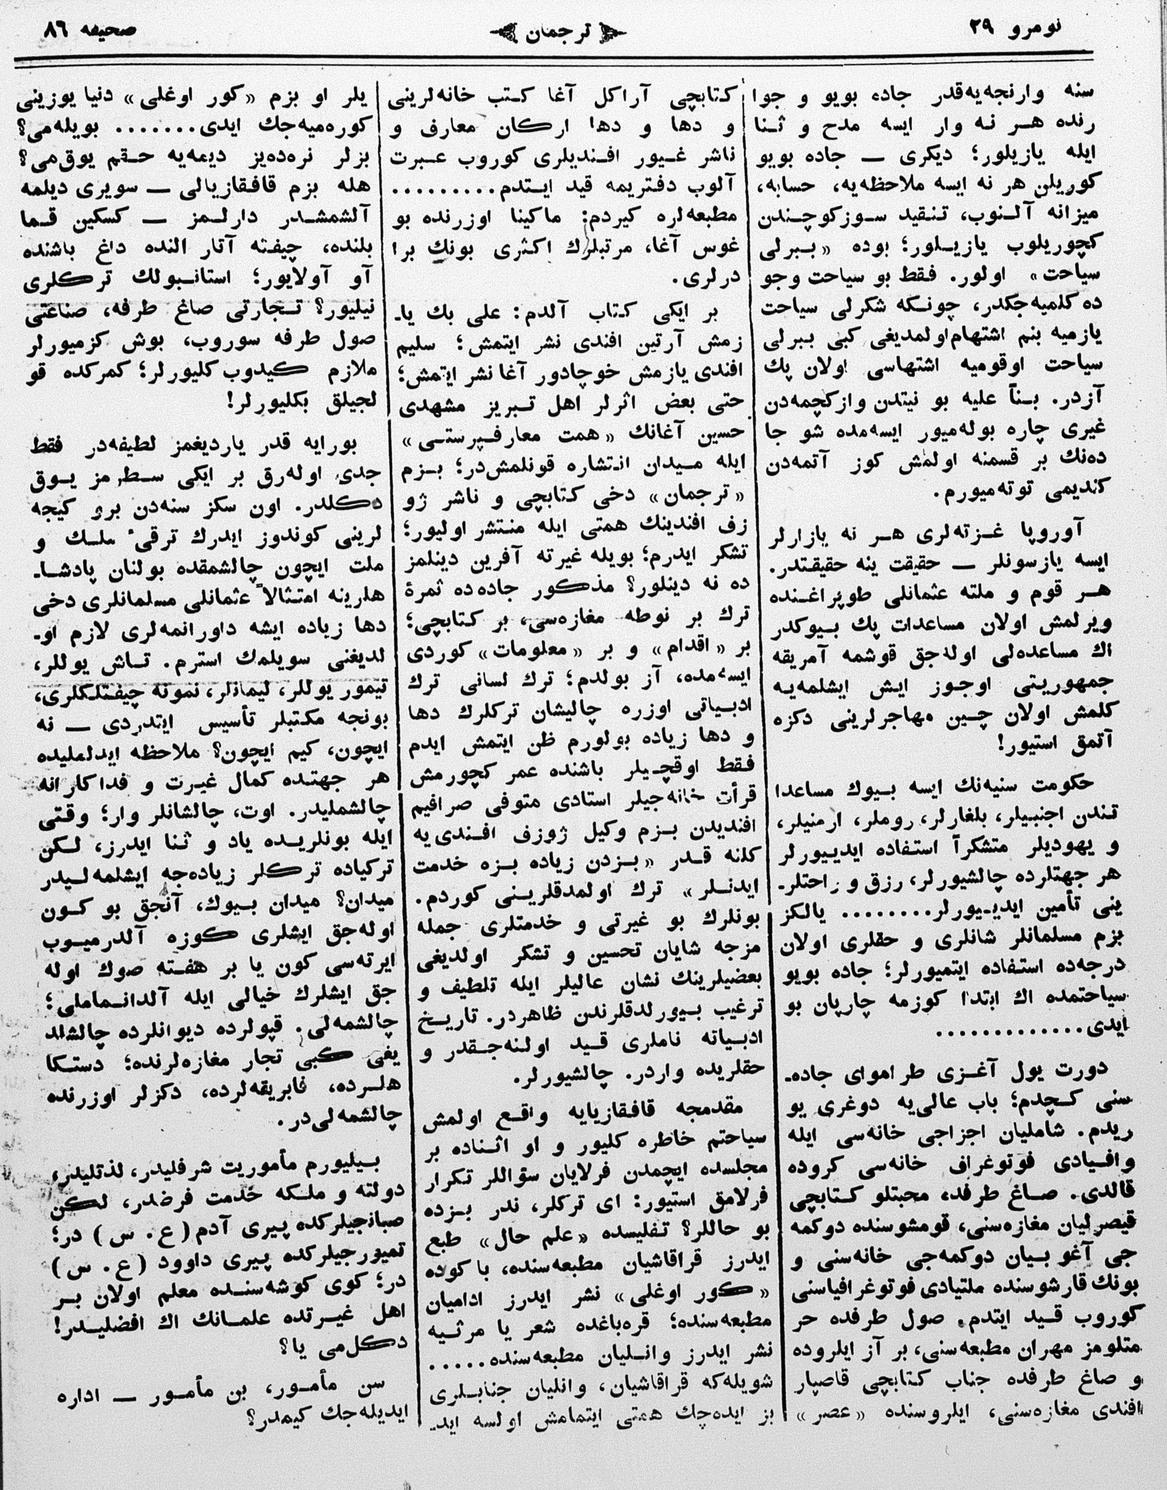 نومرو ٢٩
ترجمان
صحیفه ٨٦
سنه وارنجه‌یه‌قدر جاده بویو و جوا
رنده هر نه وار ایسه مدح و ثنا
ایله یازیلور؛ دیکری — جاده بویو
کوریلن هر نه ایسه ملاحظه‌یه، حسابه،
میزانه آلنوب، تنقید سوزکوچندن
کچوریلوب یازیلور؛ بوده «ببرلی
سیاحت» اولور. فقط بو سیاحت وجو
ده کلمیه‌جکدر، چونکه شکرلی سیاحت
یازمیه بنم اشتهام‌اولمدیغی کبی ببرلی
سیاحت اوقومیه اشتهاسی اولان پك
آزدر. بنأ علیه بو نیتدن وازکچمه‌دن
غیری چاره بوله‌میور ایسه‌مده شو جا
ده‌نك بر قسمنه اولمش کوز آتمه‌دن
کندیمی توته‌میورم.
آوروپا غزته‌لری هر نه یازارلر
ایسه یازسونلر — حقیقت ینه حقیقتدر.
هر قوم و ملته عثمانلی طوپراغنده
ویرلمش اولان مساعدات پك بیوکدر
اك مساعده‌لی اوله‌جق قوشمه آمریقه
جمهوریتی اوجوز ایش ایشلمه‌یه
کلمش اولان چین مهاجرلرینی دکزه
آتمق استیور!
حکومت سنیه‌نك ایسه بیوك مساعدا
تندن اجنبیلر، بلغارلر، روملر، ارمنیلر،
و یهودیلر متشکرآ استفاده ایدییورلر
هر جهتلرده چالشیورلر، رزق و راحتلر-
ینی تأمین ایدییورلر........ یالکز
بزم مسلمانلر شانلری و حقلری اولان
درجه‌ده استفاده ایتمیورلر؛ جاده بویو
سیاحتمده اك ابتدا کوزمه چارپان بو
ایدی.............
دورت یول آغزی طراموای جاده-
سنی کچدم؛ باب عالی‌یه دوغری یو
ریدم. شاملیان اجزاجی خانه‌سی ایله
وافیادی فوتوغراف خانه‌سی کروده
قالدی. صاغ طرفد، محبتلو کتابچی
قیصرلیان مغازه‌سنی، قومشوسنده دوکمه
جی آغو بیان دوکمه‌جی خانه‌سنی و
بونك قارشوسنده ملتیادی فوتوغرافیاسنی
کوروب قید ایتدم. صول طرفده حر
متلومز مهران مطبعه‌سنی، بر آز ایلروده
و صاغ طرفده جناب کتابچی قاصپار
افندی مغازه‌سنی، ایلروسنده «عصر»
کتابچی آراکل آغا کتب خانه‌لرینی
و دها و دها ارکان معارف و
ناشر غیور افندیلری کوروب عبرت
آلوب دفتریمه قید ایتدم.........
مطبعه‌لره کیردم: ماکینا اوزرنده بو
غوس آغا، مرتبلرك اکثری بونك برا
درلری.
بر ایکی کتاب آلدم: علی بك یا-
زمش آرتین افندی نشر ایتمش؛ سلیم
افندی یازمش خوچادور آغا نشر ایتمش؛
حتی بعض اثرلر اهل تبریز مشهدی
حسین آغانك «همت معارفپرستی»
ایله میدان انتشاره قونلمش‌در؛ بزم
«ترجمان» دخی کتابچی و ناشر ژو
زف افندینك همتی ایله منتشر اولیور؛
تشکر ایدرم؛ بویله غیرته آفرین دینلمز
ده نه دینلور؟ مذکور جاده‌ده ثمرهٔ
ترك بر نوطه مغازه‌سی، بر کتابچی؛
بر «اقدام» و بر «معلومات» کوردی
ایسه‌مده، آز بولدم؛ ترك لسانی ترك
ادبیاتی اوزره چالیشان ترکلرك دها
و دها زیاده بولورم ظن ایتمش ایدم
فقط اوقچیلر باشنده عمر کچورمش
قرأت خانه‌جیلر استادی متوفی صرافیم
افندیدن بزم وکیل ژوزف افندی‌یه
کلنه قدر «بزدن زیاده بزه خدمت
ایدنلر» ترك اولمدقلرینی کوردم.
بونلرك بو غیرتی و خدمتلری جمله
مزجه شایان تحسین و تشکر اولدیغی
بعضیلرینك نشان عالیلر ایله تلطیف و
ترغیب بیورلدقلرندن ظاهردر. تاریخ
ادبیاته ناملری قید اولنه‌جقدر و
حقلریده واردر. چالشیورلر.
مقدمجه قافقازیایه واقع اولمش
سیاحتم خاطره کلیور و او اثناده بر
مجلسده ایچمدن فرلایان سؤاللر تکرار
فرلامق استیور: ای ترکلر، ندر بزده
بو حاللر؟ تفلیسده «علم حال» طبع
ایدرز قراقاشیان مطبعه‌سنده، باکوده
«کور اوغلی» نشر ایدرز ادامیان
مطبعه‌سنده؛ قره‌باغده شعر یا مرثیه
نشر ایدرز وانلیان مطبعه‌سنده.....
شویله‌که قراقاشیان، وانلیان جنابلری
بز ایده‌چك همتی ایتمامش اولسه اید-
یلر او بزم «کور اوغلی» دنیا یوزینی
کوره‌میه‌جك ایدی....... بویله‌می؟
بزلر نره‌ده‌یز دیمه‌یه حقم یوق‌می؟
هله بزم قافقازیالی — سویری دیلمه
آلشمشدر دارلمز — کسکین قما
بلنده، چیفته آتار النده داغ باشنده
آو آولایور؛ استانبولك ترکلری
نیلیور؟ تجارتی صاغ طرفه، صناعتی
صول طرفه سوروب، بوش کزمیورلر
ملازم کیدوب‌کلیورلر؛ کمرکده قو
لجیلق بکلیورلر!
بورایه قدر یاردیغمز لطیفه‌در فقط
جدی اوله‌رق بر ایکی سطرمز یوق
دکلدر. اون سکز سنه‌دن برو کیجه
لرینی کوندوز ایدرك ترقیٔ ملك و
ملت ایچون چالشمقده بولنان پادشا-
هلرینه امتثالاً عثمانلی مسلمانلری دخی
دها زیاده ایشه داورانمه‌لری لازم او-
لدیغنی سویلمك استرم. تاش یوللر،
تیمور یوللر، لیمانلر، نمونه چیفتلکلری،
بونجه مکتبلر تأسیس ایتدردی — نه
ایچون، کیم ایچون؟ ملاحظه ایدلملیده
هر جهتده کمال غیرت و فداکارانه
چالشملیدر. اوت، چالشانلر وار؛ وقتی
ایله بونلریده یاد و ثنا ایدرز، لکن
ترکیاده ترکلر زیاده‌جه ایشلمه‌لیدر
میدان؟ میدان بیوك، آنجق بو کون
اوله‌جق ایشلری کوزه آلدرمیوب
ایرته‌سی کون یا بر هفته صوك اوله
جق ایشلرك خیالی ایله آلدانماملی؛
چالشمه‌لی. قپولرده دیوانلرده چالشلد
یغی کبی تجار مغازه‌لرنده؛ دستکا
هلرده، فابریقه‌لرده، دکزلر اوزرنده
چالشمه‌لی‌در.
بیلیورم مأموریت شرفلیدر، لذتلیدر،
دولته و ملکه خدمت فرضدر، لکن
صبانجیلرکده پیری آدم (ع. س) در؛
تمیورجیلرکده پیری داوود (ع. س)
در؛ کوی کوشه‌سنده معلم اولان بر
اهل غیرتده علمانك اك افضلیدر!
دکل‌می یا؟
سن مأمور، بن مأمور — اداره
ایدیله‌جك کیمدر؟